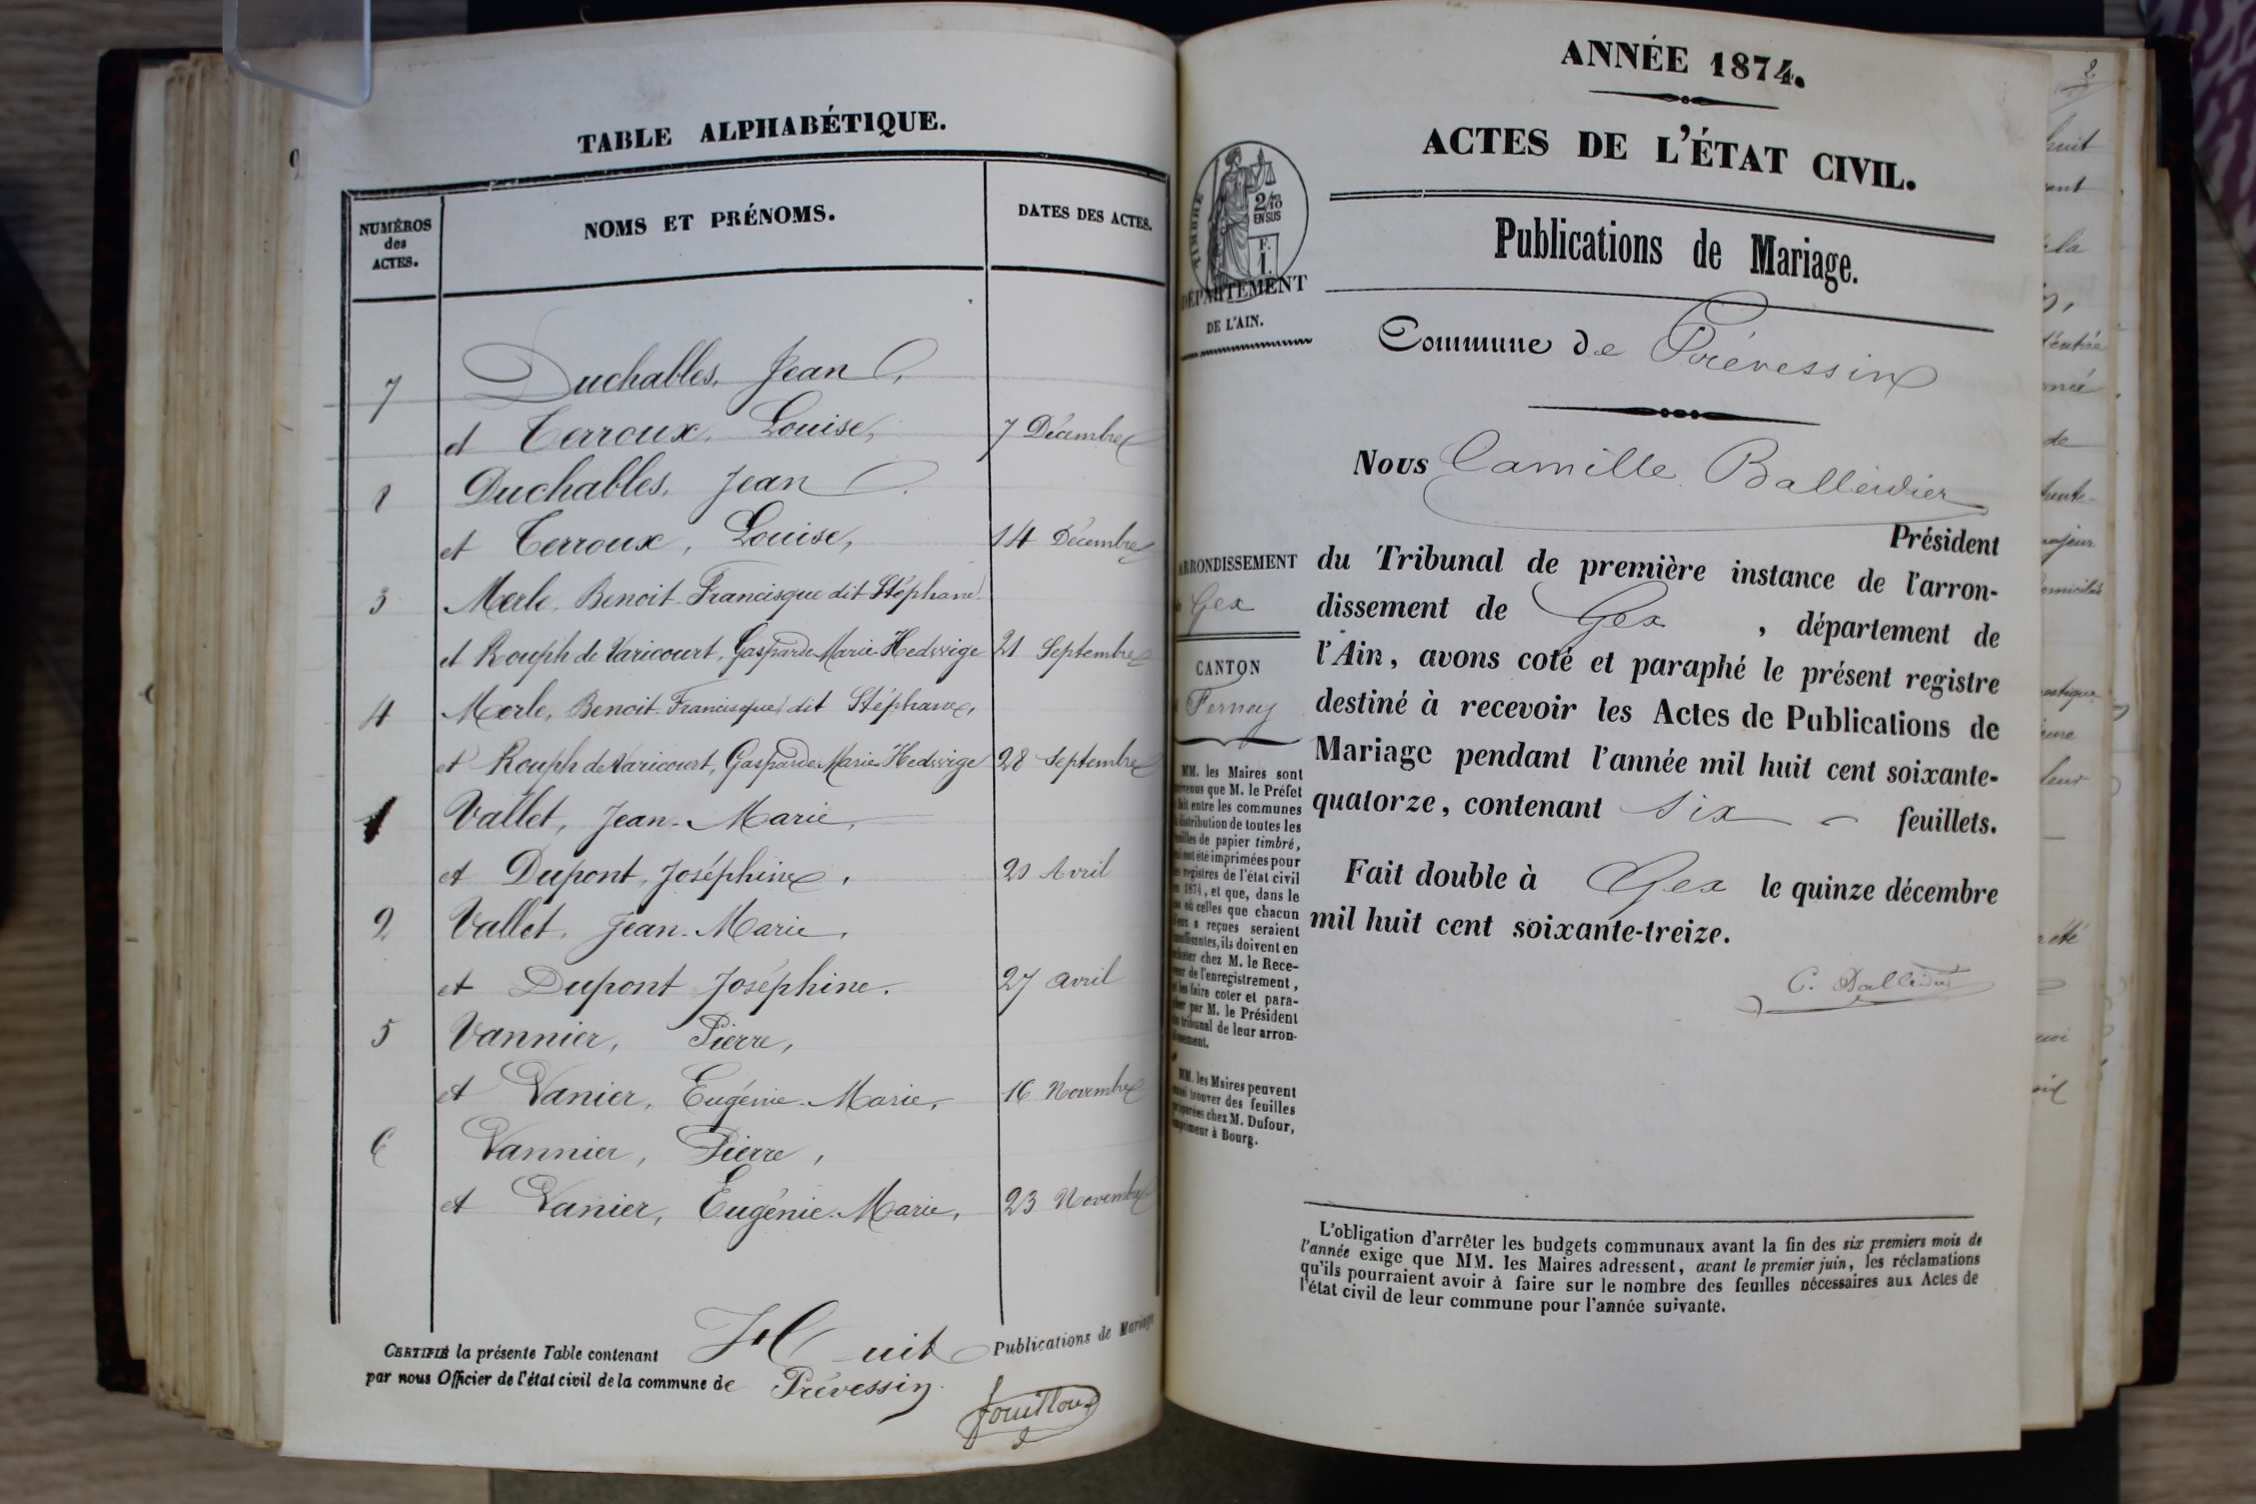 TABLE ALPHABÉTIQUE.
NUMÉROS
des
ACTES.
NOMS ET PRÉNOMS.
DATES DES ACTES.
7 Duchables, Jean
et Terroux, Louise, 7 Décembre
8 Duchables, Jean
et Terroux, Louise, 14 Décembre
3 Merle, Benoit-Francisque dit Stéphane
et Rouph de Varicourt, Gasparde-Marie-Hedwige 21 Septembre
4 Merle, Benoit-Francisque dit Stéphane,
et Rouph de Varicourt, Gasparde-Marie-Hedwige 28 Septembre
1 Vallet, Jean-Marie,
et Dupont, Joséphine, 20 Avril
2 Vallet, Jean-Marie,
et Dupont Joséphine. 27 avril
5 Vannier, Pierre,
et Vanier, Eugénie-Marie, 16 Novembre
6 Vannier, Pierre,
et Vanier, Eugénie-Marie, 23 Novembre
CERTIFIÉ la présente Table contenant Huit Publications de Mariage
par nous Officier de l'état civil de la commune de Prévessin.
Fouilloux
ANNÉE 1874.
ACTES DE L'ÉTAT CIVIL.
TIMBRE
2/10
EN SUS
F.
1.
DÉPARTEMENT
DE L'AIN.
Publications de Mariage.
Commune de Prévessin
Nous Camille Balleidier
Président
du Tribunal de première instance de l'arron-
dissement de Gex, département de
l'Ain, avons coté et paraphé le présent registre
destiné à recevoir les Actes de Publications de
Mariage pendant l'année mil huit cent soixante-
quatorze, contenant six feuillets.
Fait double à Gex le quinze décembre
mil huit cent soixante-treize.
C. Balleidier
ARRONDISSEMENT
Gex
CANTON
Ferney
MM. les Maires sont
que M. le Préfet
fait entre les communes
distribution de toutes les
de papier timbré,
ont été imprimées pour
registres de l'état civil
1874, et que, dans le
où celles que chacun
a reçues seraient
ils doivent en
chez M. le Rece-
de l'enregistrement,
les faire coter et para-
par M. le Président
tribunal de leur arron-
MM. les Maires peuvent
trouver des feuilles
chez M. Dufour,
à Bourg.
L'obligation d'arrêter les budgets communaux avant la fin des six premiers mois de
l'année exige que MM. les Maires adressent, avant le premier juin, les réclamations
qu'ils pourraient avoir à faire sur le nombre des feuilles nécessaires aux Actes de
l'état civil de leur commune pour l'année suivante.
2
huit
la
de
été